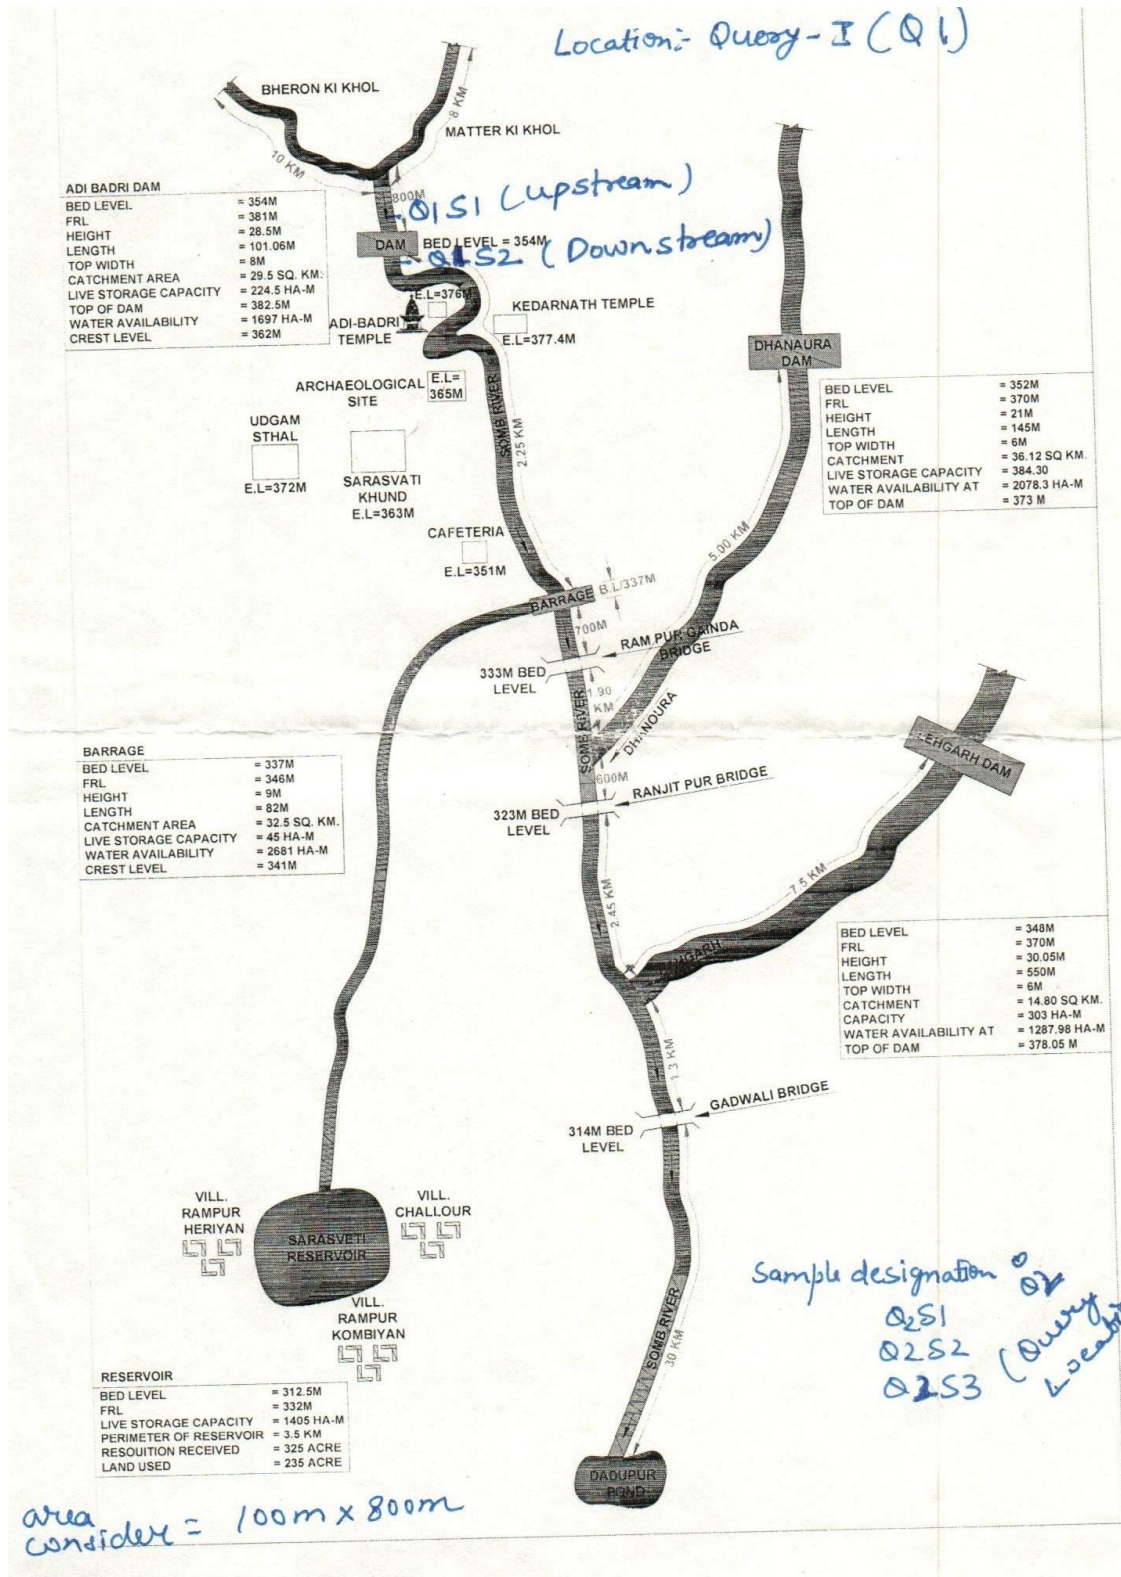 Location:- Query-I (Q1)
BHERON KI KHOL
8 KM
MATTER KI KHOL
10 KM
800M
Q1S1 (Upstream)
DAM
BED LEVEL = 354M
Q1S2 (Downstream)
ADI BADRI DAM
BED LEVEL = 354M
FRL = 381M
HEIGHT = 28.5M
LENGTH = 101.06M
TOP WIDTH = 8M
CATCHMENT AREA = 29.5 SQ. KM.
LIVE STORAGE CAPACITY = 224.5 HA-M
TOP OF DAM = 382.5M
WATER AVAILABILITY = 1697 HA-M
CREST LEVEL = 362M
E.L=376M
ADI-BADRI
TEMPLE
KEDARNATH TEMPLE
E.L=377.4M
DHANAURA
DAM
ARCHAEOLOGICAL
SITE
E.L=
365M
SOMB RIVER
2.25 KM
UDGAM
STHAL
E.L=372M
SARASVATI
KHUND
E.L=363M
CAFETERIA
E.L=351M
BED LEVEL = 352M
FRL = 370M
HEIGHT = 21M
LENGTH = 145M
TOP WIDTH = 6M
CATCHMENT = 36.12 SQ KM.
LIVE STORAGE CAPACITY = 384.30
WATER AVAILABILITY AT = 2078.3 HA-M
TOP OF DAM = 373 M
5.00 KM
BARRAGE
B.L/337M
700M
RAM PUR GAINDA
BRIDGE
333M BED
LEVEL
1.90
KM
SOMB RIVER
DHANOURA
600M
RANJIT PUR BRIDGE
323M BED
LEVEL
LEHGARH DAM
BARRAGE
BED LEVEL = 337M
FRL = 346M
HEIGHT = 9M
LENGTH = 82M
CATCHMENT AREA = 32.5 SQ. KM.
LIVE STORAGE CAPACITY = 45 HA-M
WATER AVAILABILITY = 2681 HA-M
CREST LEVEL = 341M
2.45 KM
7.5 KM
BED LEVEL = 348M
FRL = 370M
HEIGHT = 30.05M
LENGTH = 550M
TOP WIDTH = 6M
CATCHMENT = 14.80 SQ KM.
CAPACITY = 303 HA-M
WATER AVAILABILITY AT = 1287.98 HA-M
TOP OF DAM = 378.05 M
1.3 KM
GADWALI BRIDGE
314M BED
LEVEL
VILL.
RAMPUR
HERIYAN
VILL.
CHALLOUR
SARASVETI
RESERVOIR
VILL.
RAMPUR
KOMBIYAN
SOMB RIVER
30 KM
Sample designation
Q2S1
Q2S2
Q2S3
(Query
RESERVOIR
BED LEVEL = 312.5M
FRL = 332M
LIVE STORAGE CAPACITY = 1405 HA-M
PERIMETER OF RESERVOIR = 3.5 KM
RESOUITION RECEIVED = 325 ACRE
LAND USED = 235 ACRE
DADUPUR
POND
area
consider = 100m x 800m